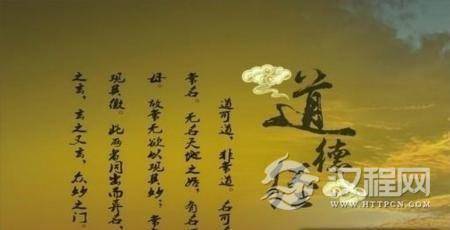 道德经
道可道，非常道。名可名
常名。无名天地之始，有名
母。故常无欲以观其妙；常
观其徼。此两者同出而异名，
之玄，玄之又玄，众妙之门。
汉程网
WWW.HTTPCN.COM